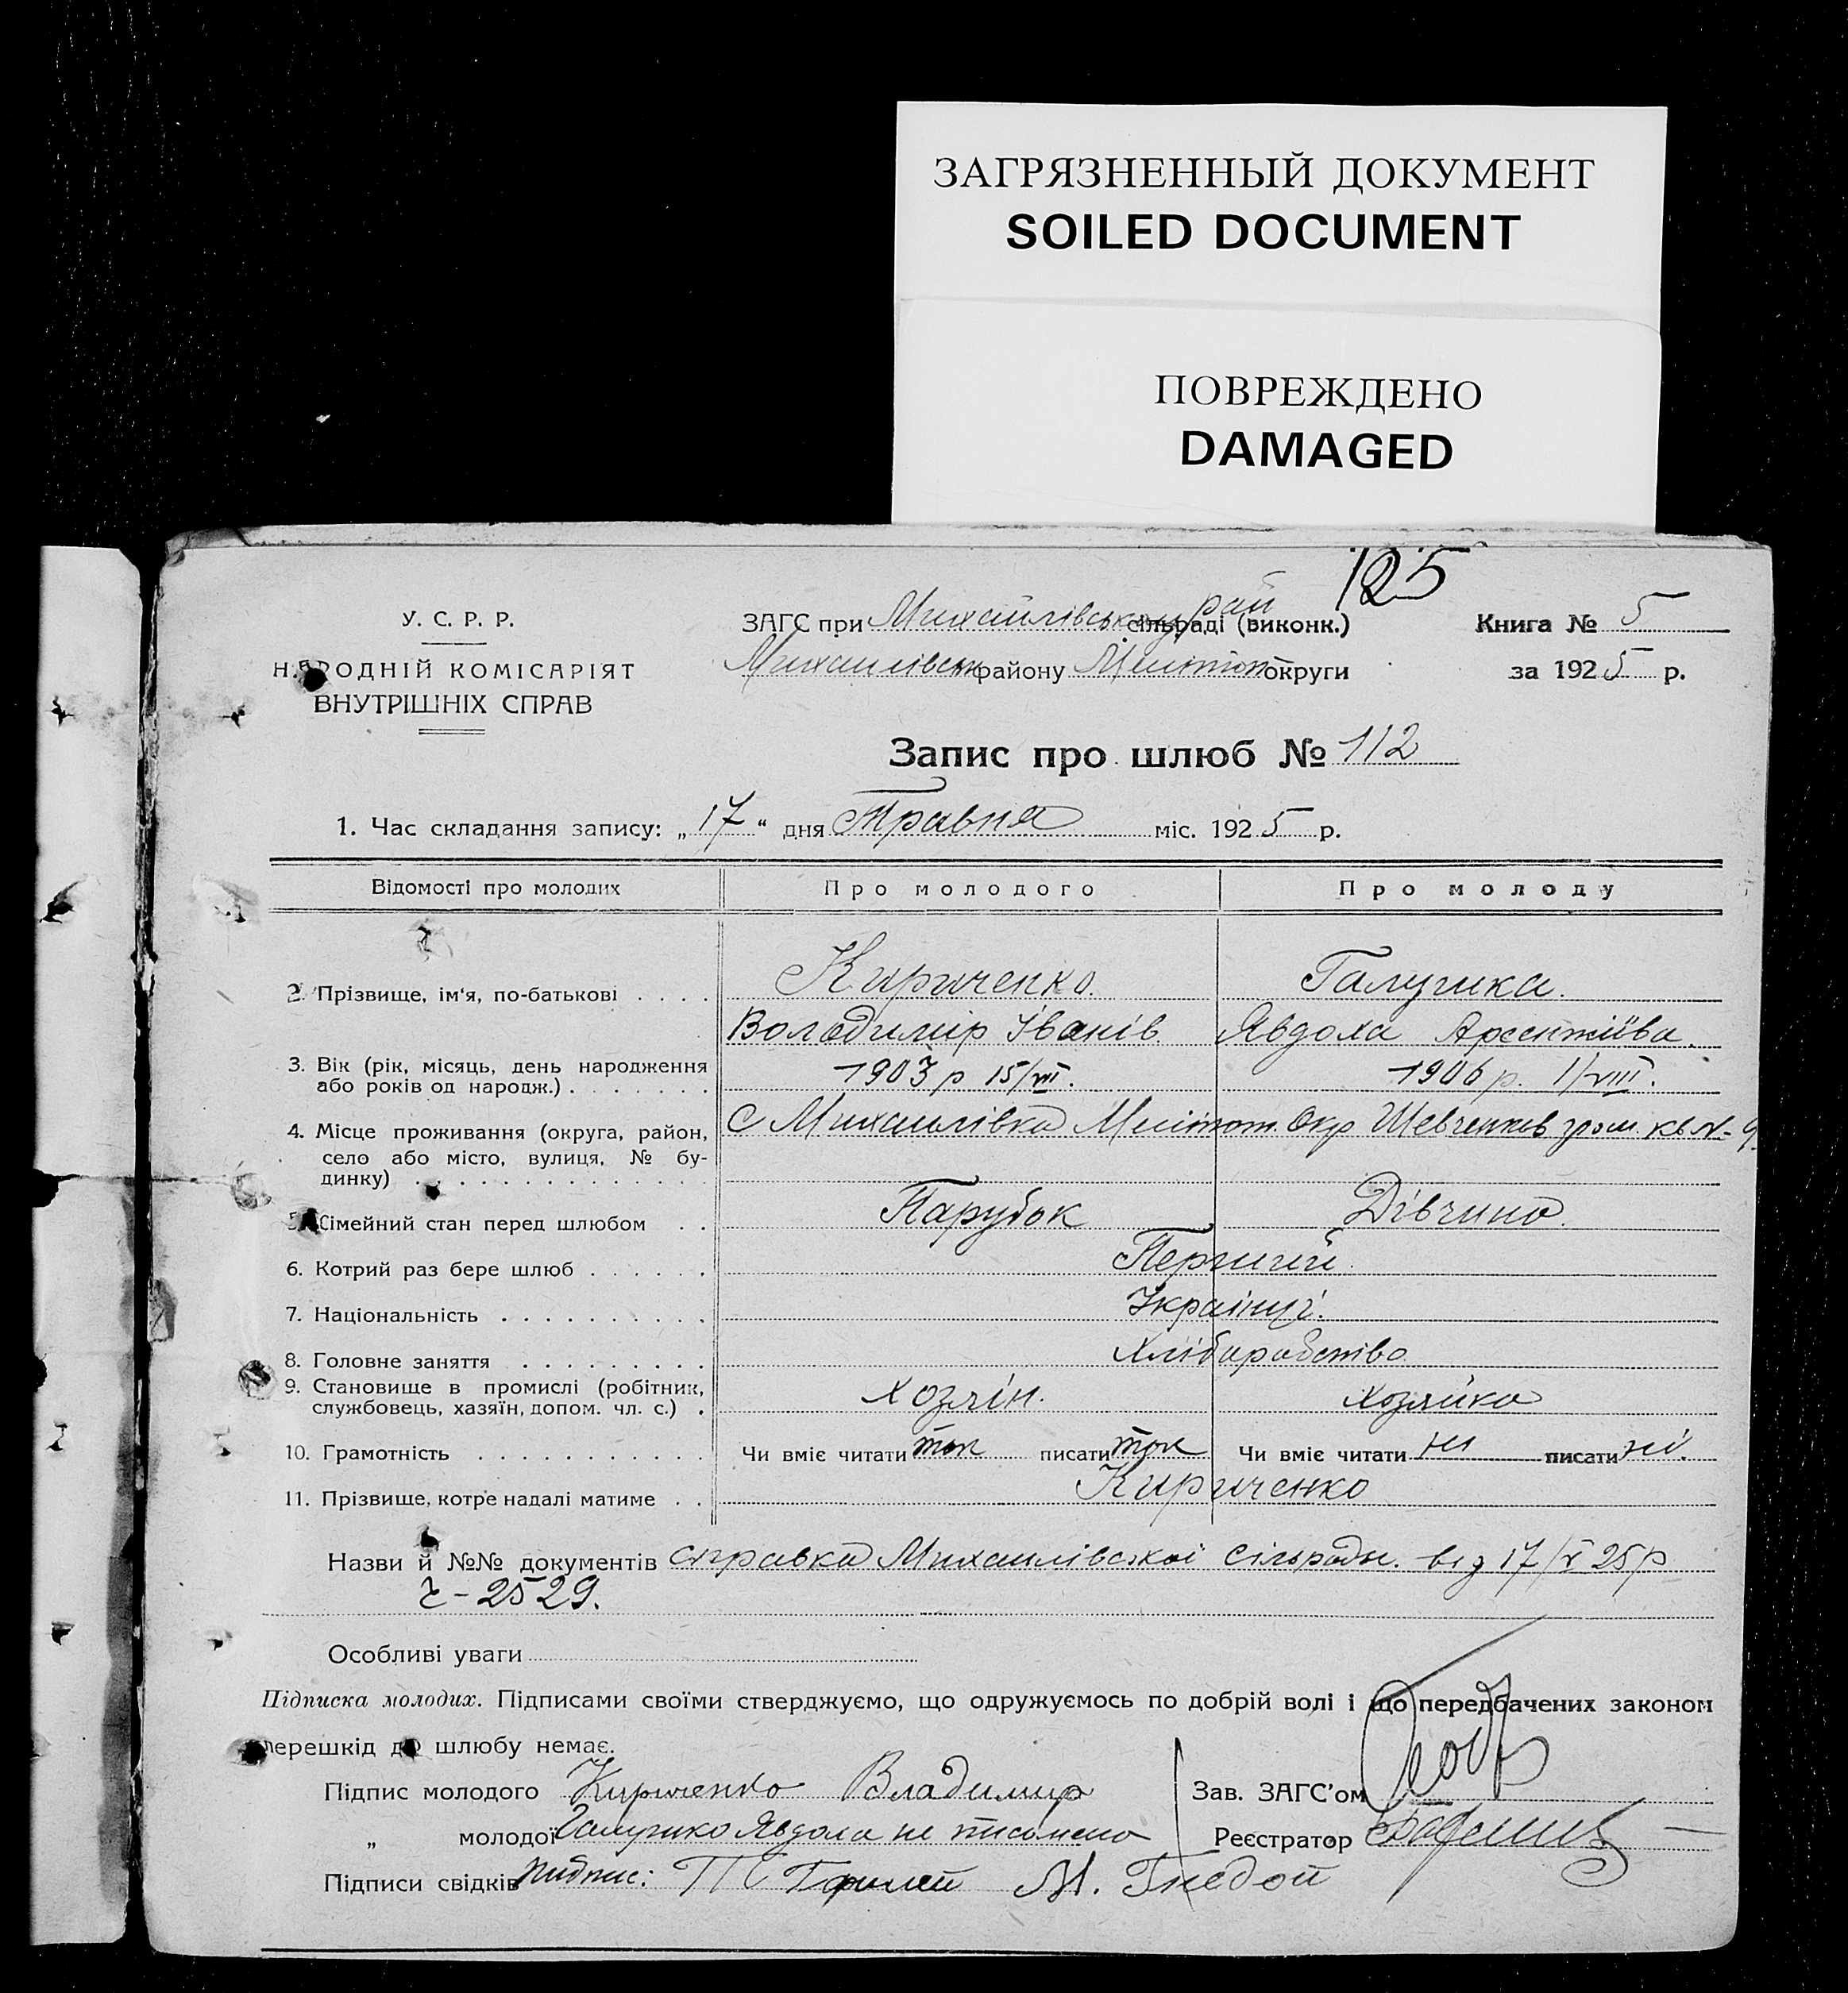 ЗАГРЯЗНЕННЫЙ ДОКУМЕНТ
SOILED DOCUMENT
ПОВРЕЖДЕНО
DAMAGED
125
У. С. Р. Р.
НАРОДНІЙ КОМІСАРІЯТ
ВНУТРІШНІХ СПРАВ
ЗАГС при Михайлівському рай сільраді (виконк.)
Михайлівськ району Мелітоп округи
Книга № 5
за 1925 р.
Запис про шлюб № 112
1. Час складання запису: „17“ дня Травня міс. 1925 р.
Відомості про молодих Про молодого Про молоду
2. Прізвище, ім'я, по-батькові . . . . Кириченко. Галушка.
Володимир Іванів Явдоха Арсентіїва.
3. Вік (рік, місяць, день народження або років од народж.) . . . . . . . 1903 р 15/VII. 1906 р. 1/VIII.
4. Місце проживання (округа, район, село або місто, вулиця, № будинку) . . . . . . . . . . . . . . с Михайлівка Мелітоп. Окр Шевченків гром. кв № 9.
5. Сімейний стан перед шлюбом . . Парубок Дівчина.
6. Котрий раз бере шлюб . . . . . . Перший
7. Національність . . . . . . . . . . Українці.
8. Головне заняття . . . . . . . . . Хліборобство
9. Становище в промислі (робітник, службовець, хазяїн, допом. чл. с.) . хозяін. хозяйка
10. Грамотність . . . . . . . . . . . Чи вміє читати так писати так Чи вміє читати ні писати ні.
11. Прізвище, котре надалі матиме . . Кириченко
Назви й №№ документів справка Михайлівської сільради. від 17/V 25р
Ч-2529.
Особливі уваги
Підписка молодих. Підписами своїми стверджуємо, що одружуємось по добрій волі і що передбачених законом
перешкід до шлюбу немає.
Підпис молодого Кириченко Владимир
Зав. ЗАГС'ом
„ молодої Галушко Явдоха не письмена
Реєстратор
Підписи свідків підпис: М. Гнедой